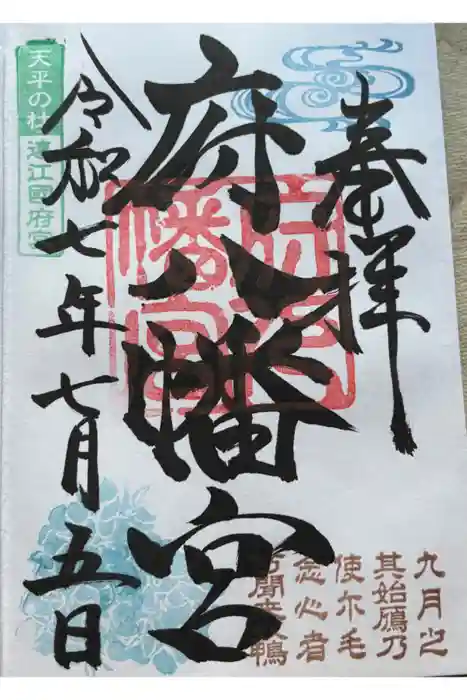 奉拝
府八幡宮
令和七年七月五日
天平の杜
遠江國府宮
府八
幡宮
九月之
其始鴈乃
使尓毛
念心者
所聞来奴鴨